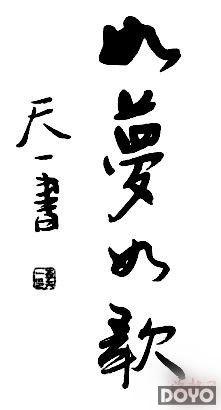 如夢如歌
天一書
DOYO